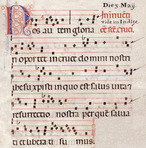 Die 3. Maij.
In inuēti
vide in Indice
Nos autem gloria
ri oportet in cruce domini nostri
jhesu xpisti in quo est salus uita et
resurrectio nostra per quē salua
ti et liberati sumus